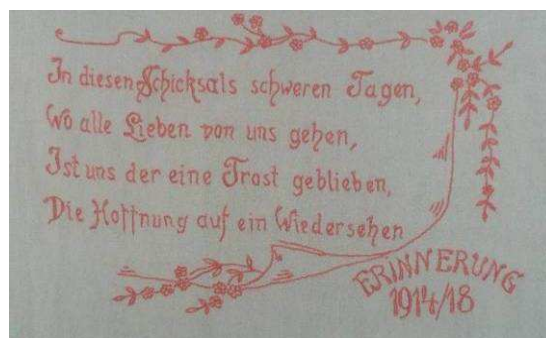 In diesen Schicksals schweren Tagen,
Wo alle Lieben von uns gehen,
Ist uns der eine Trost geblieben,
Die Hoffnung auf ein Wiedersehen
ERINNERUNG
1914/18